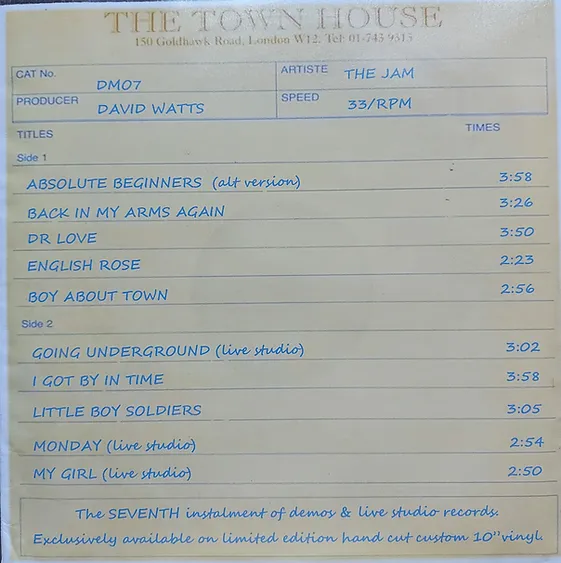 THE TOWN HOUSE
150 Goldhawk Road, London W12. Tel: 01-743 9313
CAT No. DM07 ARTISTE THE JAM
PRODUCER DAVID WATTS SPEED 33/RPM
TITLES TIMES
Side 1
ABSOLUTE BEGINNERS (alt version) 3:58
BACK IN MY ARMS AGAIN 3:26
DR LOVE 3:50
ENGLISH ROSE 2:23
BOY ABOUT TOWN 2:56
Side 2
GOING UNDERGROUND (live studio) 3:02
I GOT BY IN TIME 3:58
LITTLE BOY SOLDIERS 3:05
MONDAY (live studio) 2:54
MY GIRL (live studio) 2:50
The SEVENTH instalment of demos & live studio records.
Exclusively available on limited edition hand cut custom 10"vinyl.